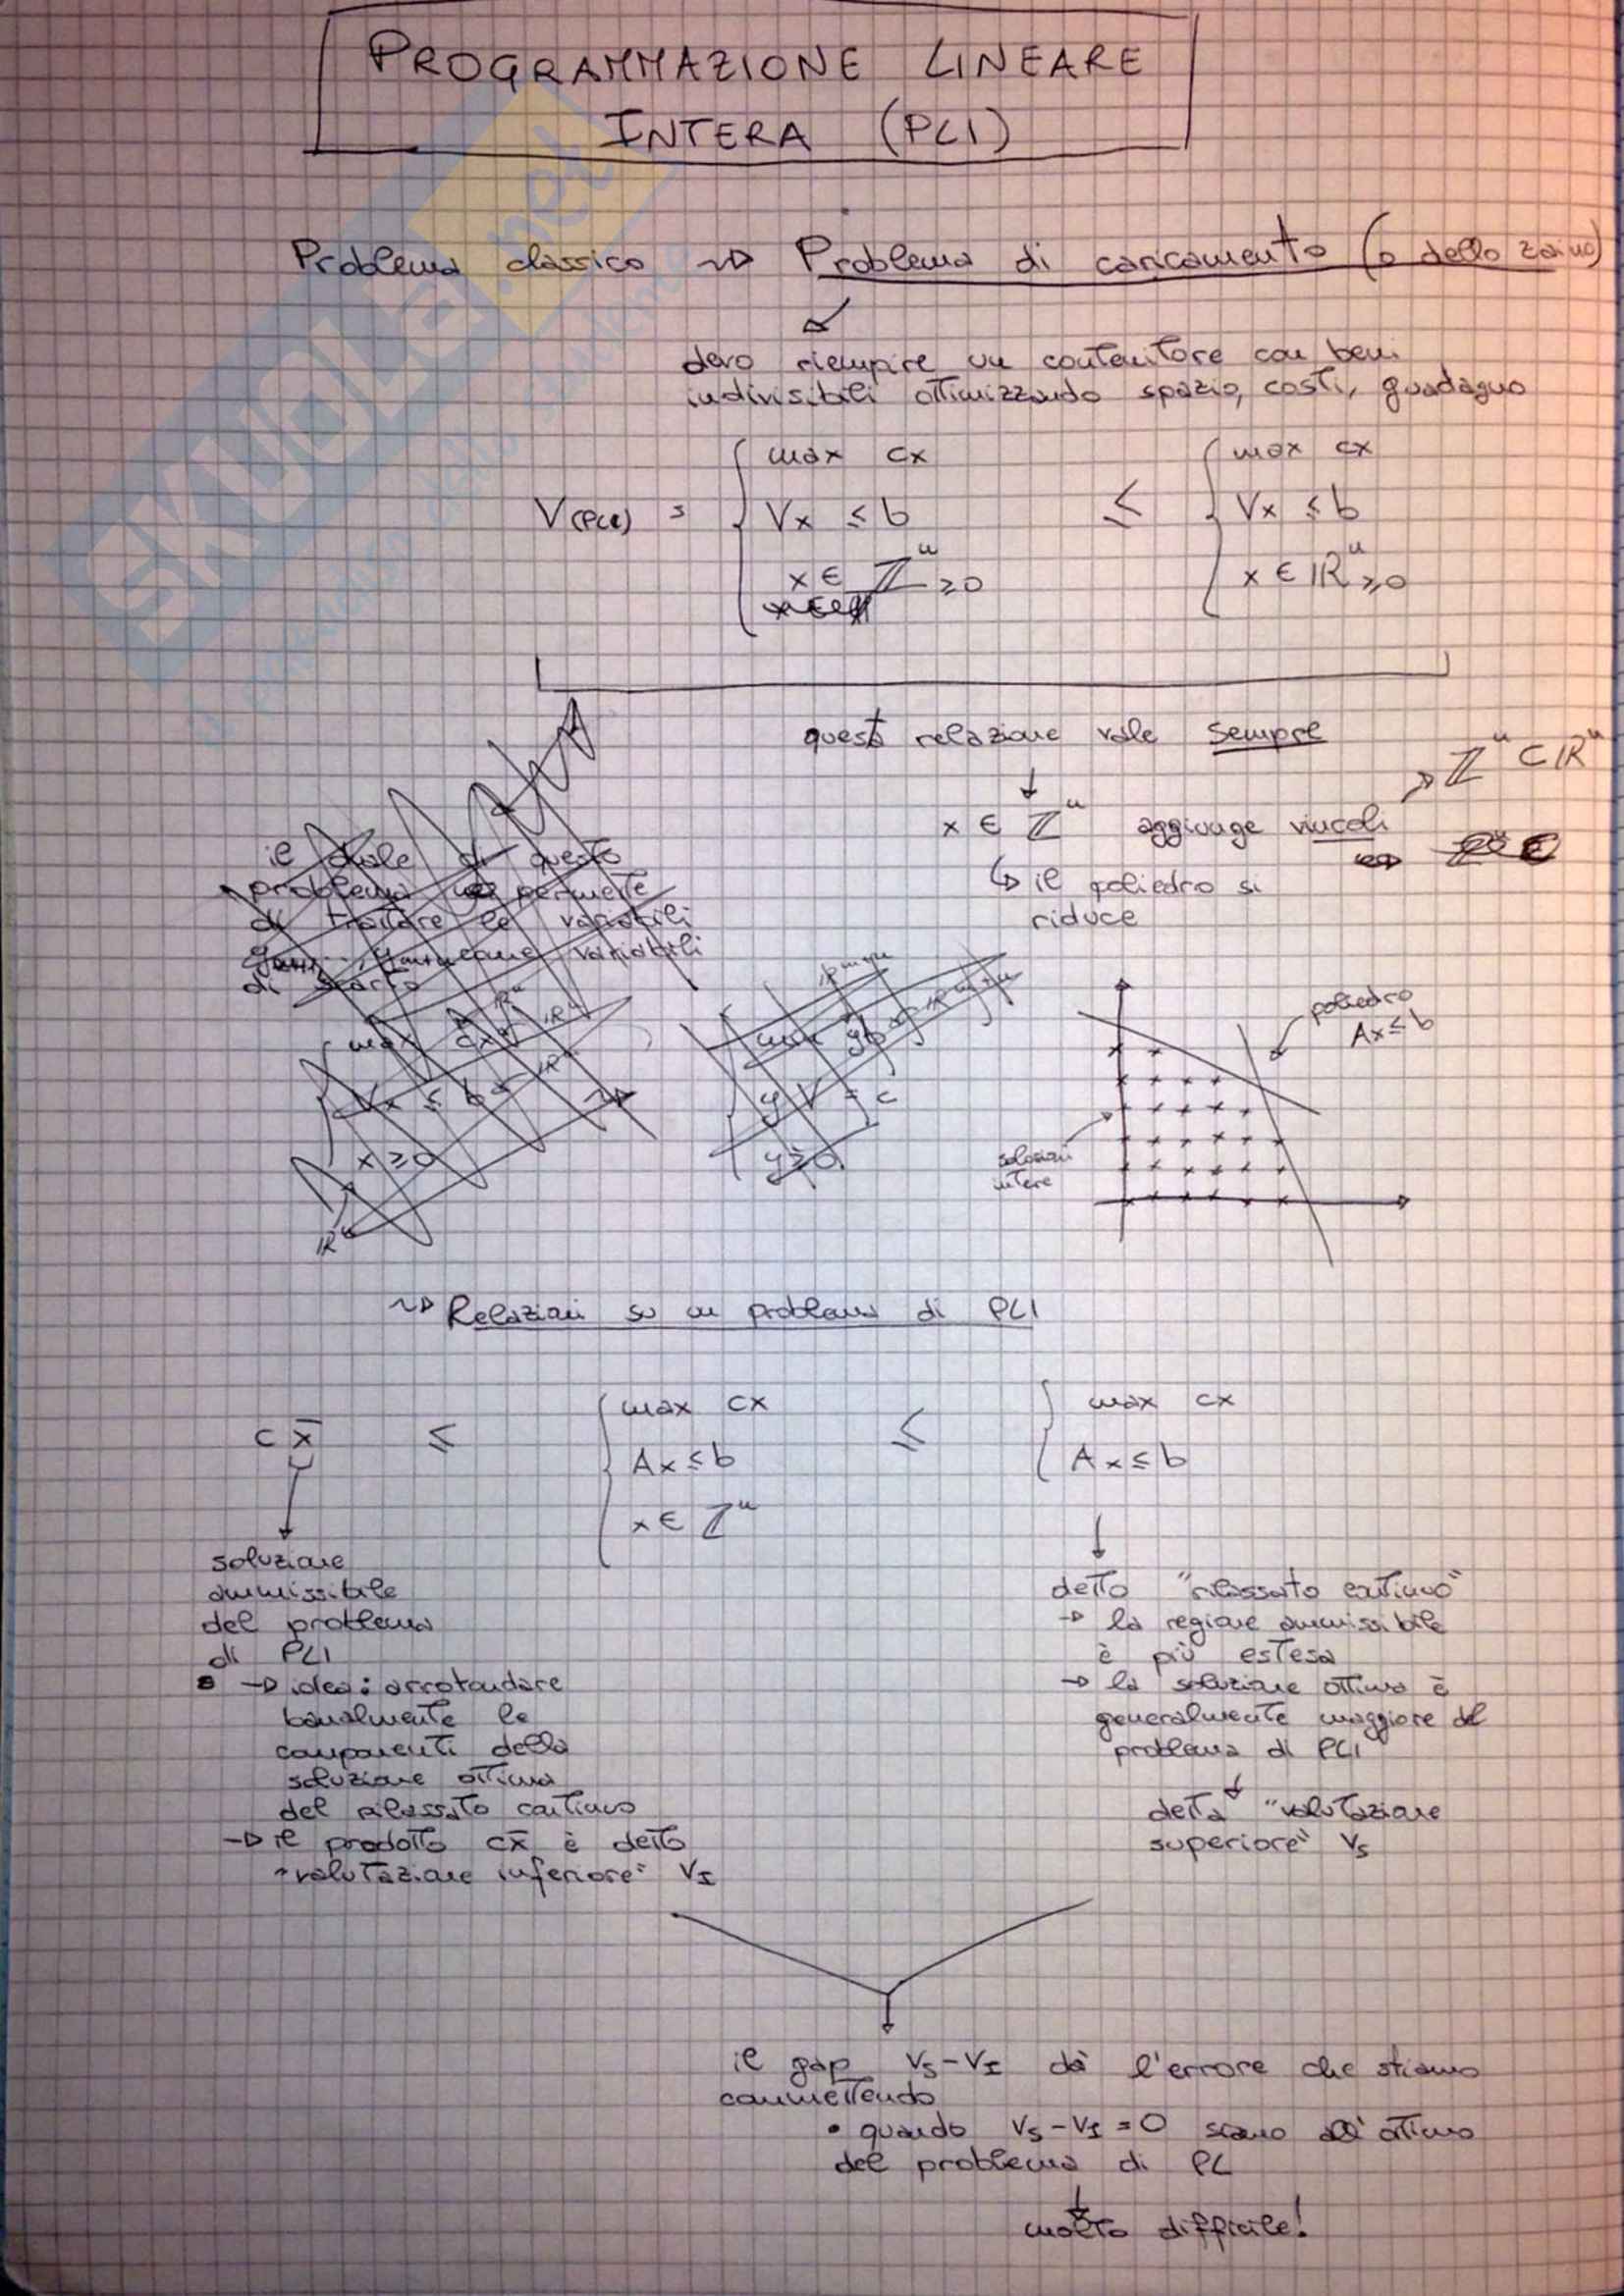 PROGRAMMAZIONE LINEARE
INTERA (PLI)
Problema classico ~> Problema di caricamento (o dello zaino)
devo riempire un contenitore con beni
indivisibili ottimizzando spazio, costi, guadagno
V(PLI) = { max cx ≤ { max cx
Vx ≤ b Vx ≤ b
x ∈ ℤⁿ≥0 x ∈ ℝⁿ≥0
questa relazione vale sempre
↓
x ∈ ℤⁿ aggiunge vincoli → ℤⁿ ⊂ ℝⁿ
↳ il poliedro si
riduce
il duale di questo
problema permette
di trattare le variabili
come variabili
di scarto
max cx
Vx ≤ b
x ≥ 0
ℝⁿ
min yb
yV = c
y ≥ 0
poliedro
Ax ≤ b
soluzioni
intere
~> Relazioni su un problema di PLI
c x̄ ≤ { max cx ≤ { max cx
Ax ≤ b Ax ≤ b
x ∈ ℤⁿ
soluzione
ammissibile
del problema
di PLI
→ idea: arrotondare
banalmente le
componenti della
soluzione ottima
del rilassato continuo
→ il prodotto cx̄ è detto
"valutazione inferiore" VI
detto "rilassato continuo"
→ la regione ammissibile
è più estesa
→ la soluzione ottima è
generalmente maggiore del
problema di PLI
↓
detta "valutazione
superiore" VS
il gap VS - VI dà l'errore che stiamo
commettendo
• quando VS - VI = 0 siamo all'ottimo
del problema di PL
↓
molto difficile!
SKUOLA.net